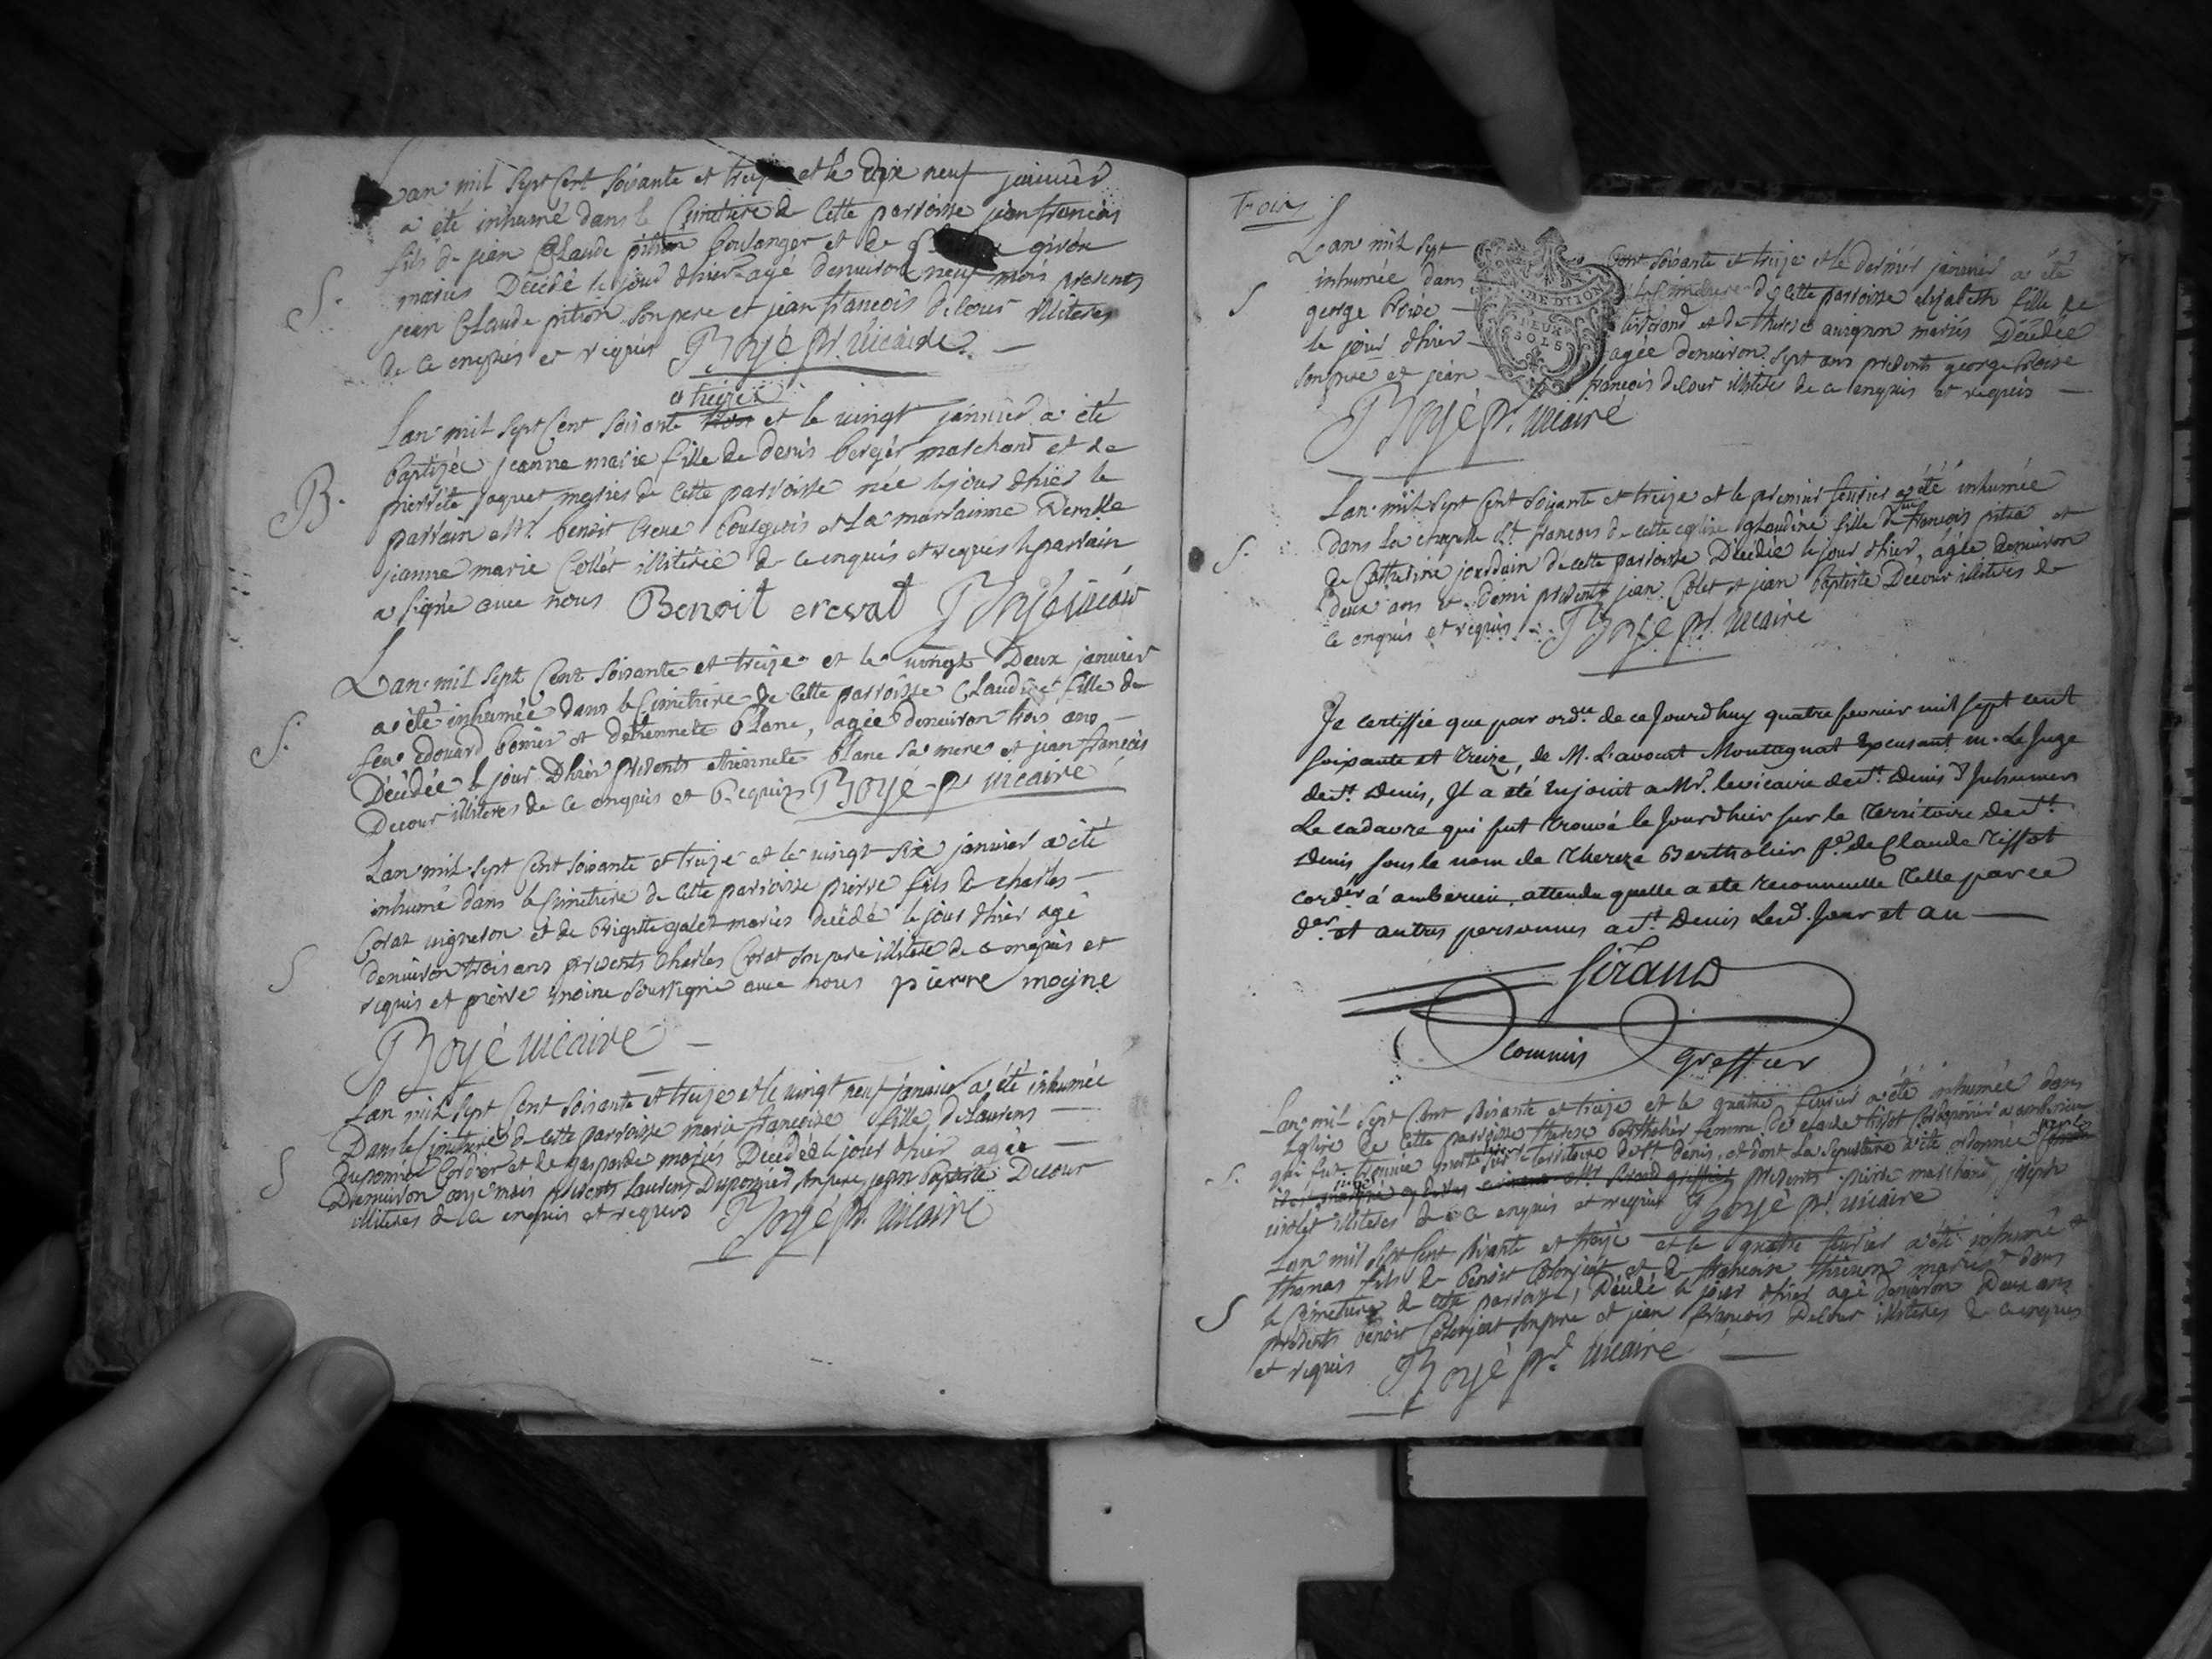 Lan mil sept Cent soixante et treize et le Dix neuf janvier
a été inhumé dans le Cimetiere de Cette parroisse jean francois
fils de jean Claude pition boulanger et de givon
mariés Décédé le jour dhier agé denviron neuf mois presents
jean Claude pition son pere et jean francois Decour illiteres
de ce enquis et requis Boyé pr. vicaire
et treize
Lan mil sept Cent soixante et le vingt janvier a été
B. baptizée jeanne marie fille de Denis berger marchand et de
pierrete jaquet mariés de Cette parroisse née le jour dhier le
parrain Mr. benoit Creva bourgeois et La marrainne Demlle
jeanne marie Collet illiterée de ce enquis et requis le parrain
a signé avec nous Benoit crevat Boyé vicaire
Lan mil sept Cent soixante et treize et le vingt Deux janvier
S. a été inhumée dans le Cimetiere de Cette parroisse Claudine fille de
feu edouard bonier et detiennete blanc, agée denviron trois ans
Décédée le jour Dhier presents etiennete blanc sa mere et jean francois
Decour illiteres de ce enquis et Requis Boyé pr vicaire
Lan mil sept Cent soixante et treize et le vingt six janvier a été
inhumé dans le Cimetiere de Cette parroisse pierre fils de charles
Corat vigneron et de Brigitte galet mariés décédé le jour dhier agé
S denviron trois ans presents Charles Corat son pere illitere de ce enquis et
requis et pierre moine soussigné avec nous pierre moyne
Boyé vicaire
Lan mil sept Cent soixante et treize et le vingt neuf janvier a été inhumée
Dans le Cimetiere de cette parroisse marie francoise fille de Laurens
S duponier Cordier et de gasparde mariés Décédée le jour dhier agée
Denviron onze mois presents Laurens Duponier son pere, jean baptiste Decour
illiteres de ce enquis et requis Boyé pr. vicaire
Trois
Lan mil sept Cent soixante et treize et le dernier janvier a été
S inhumée dans le Cimetiere de cette parroisse elizabeth fille de
george boise tisserand et de therese avignon mariés Décédée
le jour dhier agée denviron sept ans presents george boise
son pere et jean francois decour illiteres de ce enquis et requis
DEUX SOLS
Boyé pr. vicaire
Lan mil sept Cent soixante et treize et le premier fevrier a été inhumée
dans la chapelle St. francois de cette eglise glaudine fille de francois pitra et
S. de Catherine jourdain de cette parroisse Décédée le jour dhier, agée denviron
deux ans et demi presents jean Colet et jean baptiste Decour illiteres de
ce enquis et requis Boyé pr. vicaire
Je certiffie que par ordce de ce Jourdhuy quatre fevrier mil sept cent
soixante et treize, de M. L'avocat Montagnat Excusant m. Le Juge
de St. Denis, Il a eté Enjoint a Mr. le vicaire de St. Denis d'Inhumer
Le cadavre qui fut trouvé le Jourdhier sur le territoire de St.
Denis sous le nom de thereze Bertholier fe. de Claude tissot
corder á amberieu, attendu quelle a eté reconnuelle telle par ce
der. et autres personnes a St. Denis Led. Jour et an
Siraud
commis Greffier
Lan mil sept Cent soixante et treize et le quatre fevrier a été inhumée dans
Leglise de Cette parroisse therese bertholier femme de claude tissot Cordonnier a amberieu
S. qui fut trouvée morte sur le territoire de St. Denis, et dont La sepulture a été ordonnée par le
juge presents pierre marchand, joseph
illiteres de ce enquis et requis Boyé pr. vicaire
Lan mil sept Cent soixante et treize et le quatre fevrier a été inhumé
thomas fils de benoit Colonjat et de francoise mariés dans
S le Cimetiere de cette parroisse, Décédé le jour dhier agé denviron Deux ans
presents benoit Colonjat son pere et jean francois Decour illiteres de ce enquis
et requis Boyé pr. vicaire